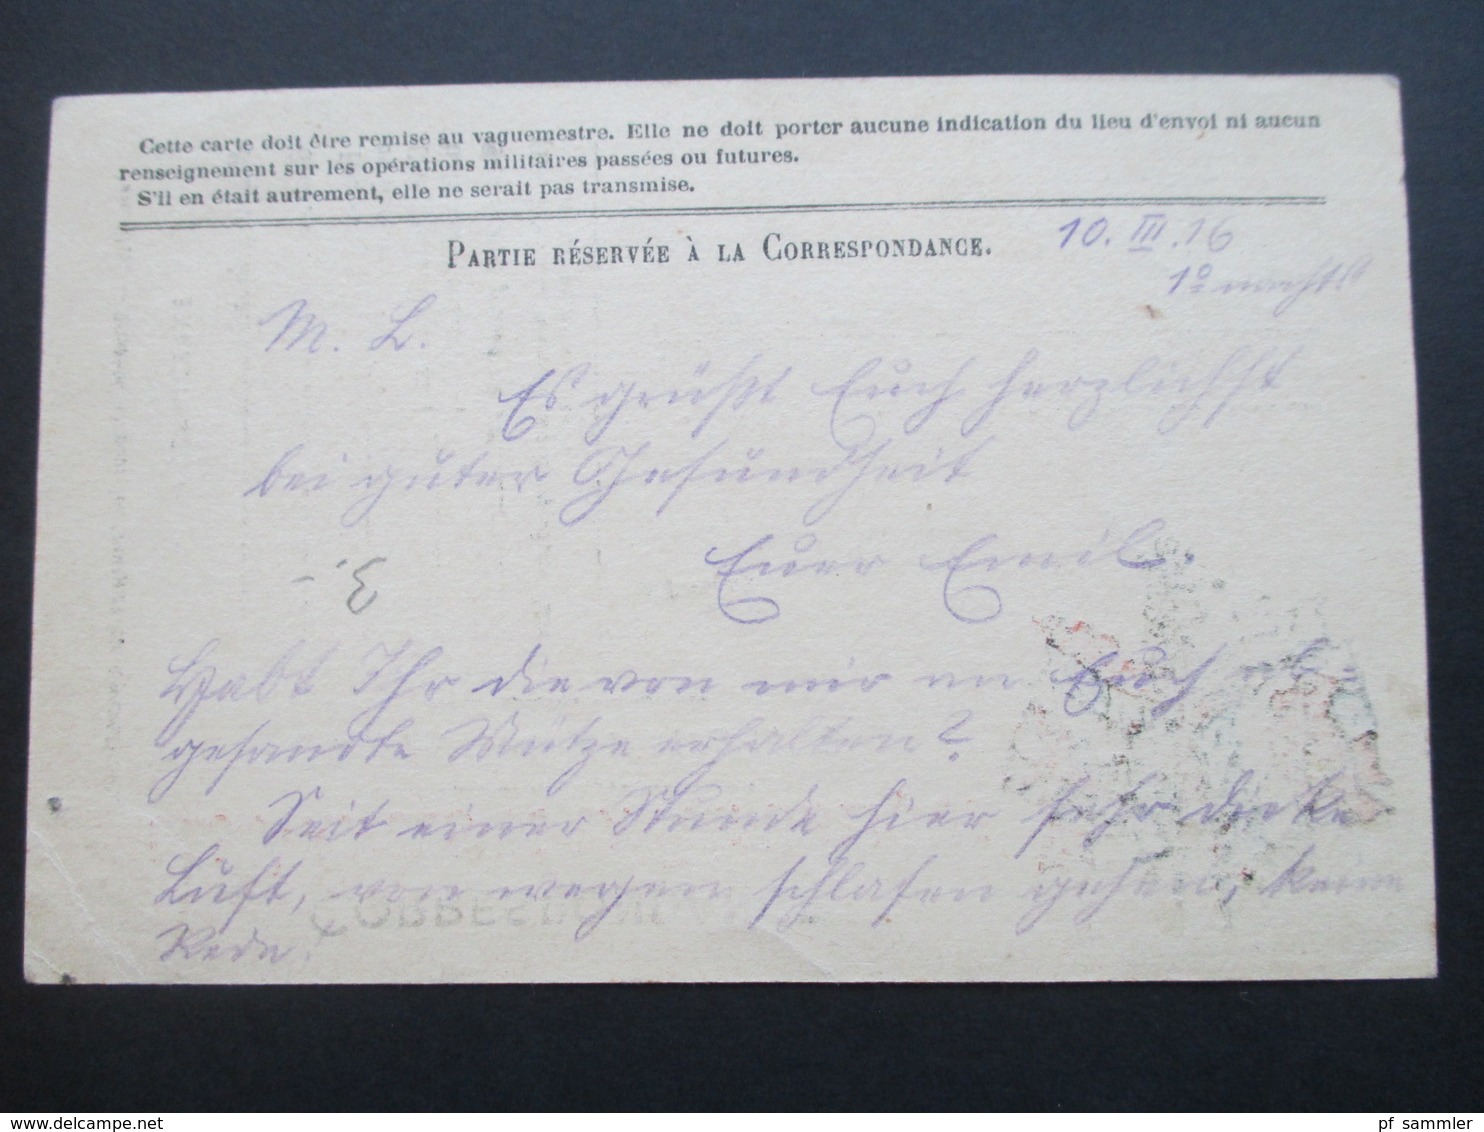 Cette carte doit être remise au vaguemestre. Elle ne doit porter aucune indication du lieu d'envoi ni aucun
renseignement sur les opérations militaires passées ou futures.
S'il en était autrement, elle ne serait pas transmise.
PARTIE RÉSERVÉE À LA CORRESPONDANCE.
10. III. 16
1º nachts
M. L.
Es grüßt Euch herzlichst
bei guter Gesundheit
Euer Emil.
3.-
Habt Ihr die von mir an Euch ab-
gesandte Mütze erhalten?
Seit einer Stunde hier sehr dicke
Luft, von wegen schlafen gehen, keine
Rede!
pf_sammler
delcampe.net